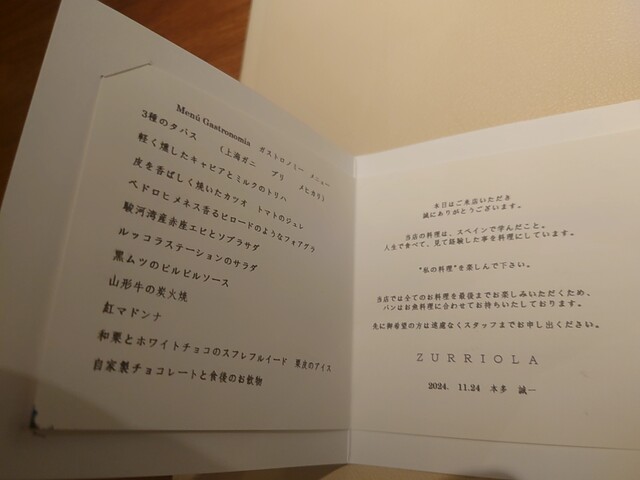 Menú Gastronomia ガストロノミー メニュー
3種のタパス (上海ガニ ブリ メヒカリ)
軽く燻したキャビアとミルクのトリハ
皮を香ばしく焼いたカツオ トマトのジュレ
ペドロヒメネス香るビロードのようなフォアグラ
駿河湾産赤座エビとソブラサダ
ルッコラステーションのサラダ
黒ムツのピルピルソース
山形牛の炭火焼
紅マドンナ
和栗とホワイトチョコのスフレフルイード 栗皮のアイス
自家製チョコレートと食後のお飲物
本日はご来店いただき
誠にありがとうございます。
当店の料理は、スペインで学んだこと。
人生で食べて、見て経験した事を料理にしています。
“私の料理”を楽しんで下さい。
当店では全てのお料理を最後までお楽しみいただくため、
パンはお魚料理に合わせてお持ちいたしております。
先に御希望の方は遠慮なくスタッフまでお申し出ください。
ZURRIOLA
2024. 11.24 本多 誠一